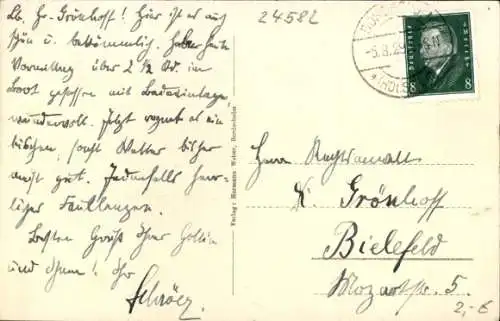 Lb. Hr. Grönhoff! Hier ist es auch
schön u. bekömmlich. Haben heute
Vormittag über 2 ½ Std. im
Boot gesessen mit Badeeinlage
wundervoll. Jetzt regnet es ein
bischen, sonst Wetter bisher
meist gut. Jedenfalls herr-
liches Faullenzen.
Besten Gruß Ihrer Gattin
und Ihnen! Ihr
24582
Deutsches Reich
8 8
Verlag: Hermann Weber, Bordesholm
Herrn Rechtsanwalt
K. Grönhoff
Bielefeld
Mozartstr. 5.
2,- €